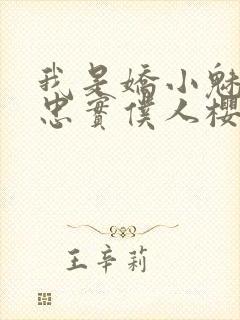 我是嬌小魅
忠實僕人櫻
王辛莉